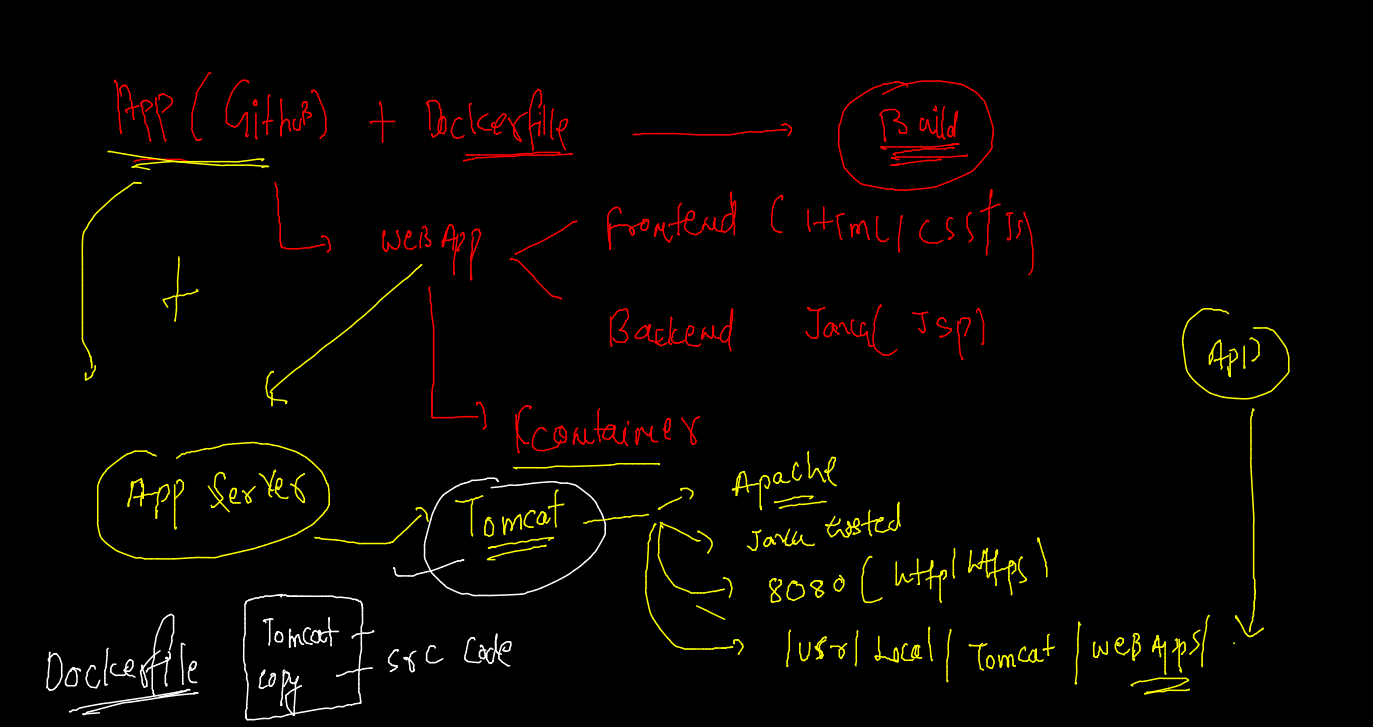 App (Github) + Dockerfile Build
WEB App
Frontend ( HTML / CSS / JS)
Backend Java( JSP)
App
container
App Server
Tomcat
Apache
Java
8080 ( http / https )
/usr/ Local / Tomcat / WEB Apps/
Dockerfile
Tomcat
copy
src code